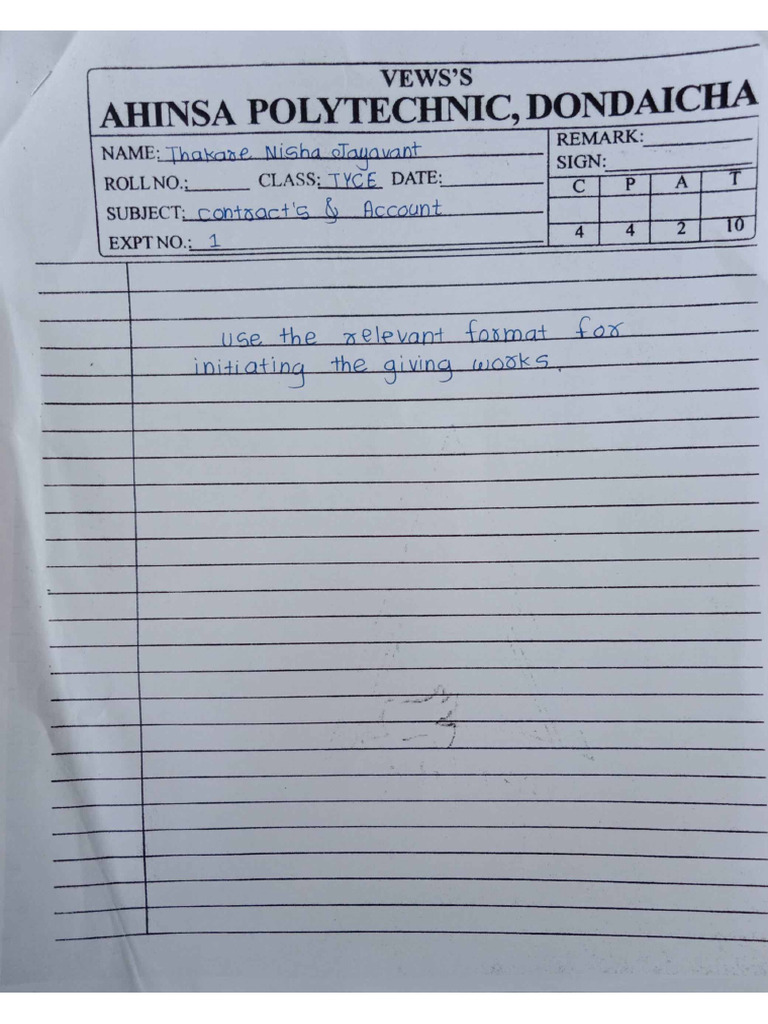 VEWS'S
AHINSA POLYTECHNIC, DONDAICHA
NAME: Thakare Nisha Jayavant
REMARK:
SIGN:
ROLL NO.: CLASS: TYCE DATE:
C P A T
SUBJECT: Contract's & Account
EXPT NO.: 1
4 4 2 10
use the relevant format for
initiating the giving works.